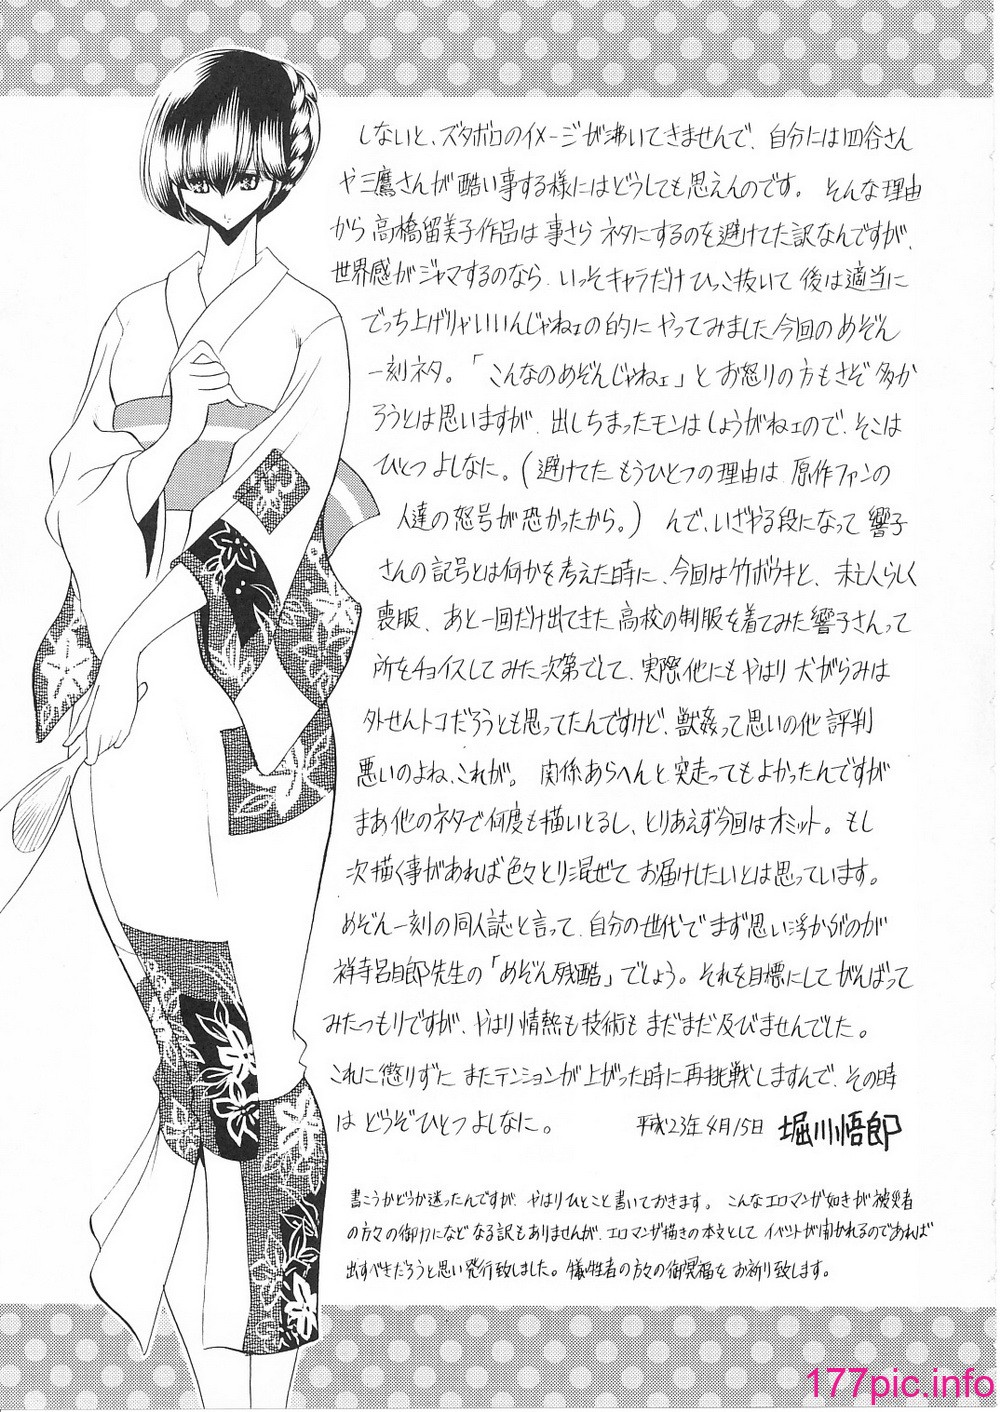 しないと、ズタボロのイメージが沸いてきませんで、自分には四谷さん
や三鷹さんが酷い事する様にはどうしても思えんのです。そんな理由
から高橋留美子作品は事さらネタにするのを避けてた訳なんですが、
世界感がジャマするのなら、いっそキャラだけひっこ抜いて後は適当に
でっち上げりゃいいんじゃねェの的にやってみました今回のめぞん
一刻ネタ。「こんなのめぞんじゃねェ」とお怒りの方もさぞ多か
ろうとは思いますが、出しちまったモンはしょうがねェので、そこは
ひとつよしなに。(避けてたもうひとつの理由は原作ファンの
人達の怒号が恐かったから。)んで、いざやる段になって響子
さんの記号とは何かを考えた時に、今回は竹ボウキと、未亡人らしく
喪服、あと一回だけ出てきた高校の制服を着てみた響子さんって
所をチョイスしてみた次第でして、実際他にもやはり犬がらみは
外せんトコだろうとも思ってたんですけど、獣姦って思いの他評判
悪いのよね、これが。関係あらへんと突走ってもよかったんですが
まあ他のネタで何度も描いとるし、とりあえず今回はオミット。もし
次描く事があれば色々とり混ぜてお届けしたいとは思っています。
めぞん一刻の同人誌と言って、自分の世代でまず思い浮かぶのが
祥寺呂自郎先生の「めぞん残酷」でしょう。それを目標にしてがんばって
みたつもりですが、やはり情熱も技術もまだまだ及びませんでした。
これに懲りずにまたテンションが上がった時に再挑戦しますんで、その時
はどうぞひとつよしなに。 平成23年4月15日 堀川悟郎
書こうかどうか迷ったんですが、やはりひとこと書いておきます。こんなエロマンガ如きが被災者
の方々の御力になどなる訳もありませんが、エロマンガ描きの本文としてイベントが開かれるのであれば
出すべきだろうと思い発行致しました。犠牲者の方々の御冥福をお祈り致します。
177pic.info